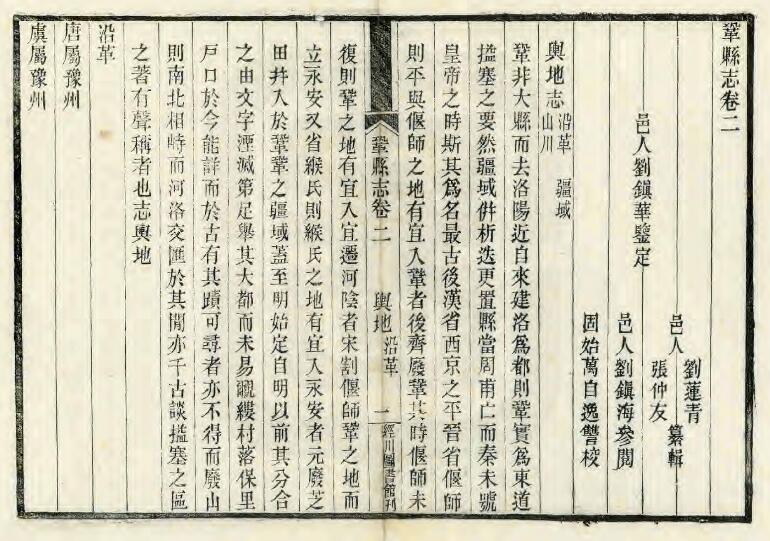 鞏縣志卷二
邑人劉鎮華鑒定
邑人 劉蓮青 張仲友 纂輯
邑人劉鎮海參閱
固始萬自逸讐校
輿地志 沿革 疆域 山川
鞏非大縣而去洛陽近自來建洛爲都則鞏實爲東道
搤塞之要然疆域併析迭更置縣當周甫亡而秦未號
皇帝之時斯其爲名最古後漢省西京之平晉省偃師
則平與偃師之地有宜入鞏者後齊廢鞏其時偃師未
鞏縣志卷二 輿地 沿革 一 經川圖書館刊
復則鞏之地有宜入宜遷河陰者宋割偃師鞏之地而
立永安又省緱氏則緱氏之地有宜入永安者元廢芝
田并入於鞏鞏之疆域蓋至明始定自明以前其分合
之由文字湮滅第足舉其大都而未易覼縷村落保里
戸口於今能詳而於古有其蹟可尋者亦不得而廢山
則南北相峙而河洛交匯於其閒亦千古談搤塞之區
之著有聲稱者也志輿地
沿革
唐屬豫州
虞屬豫州